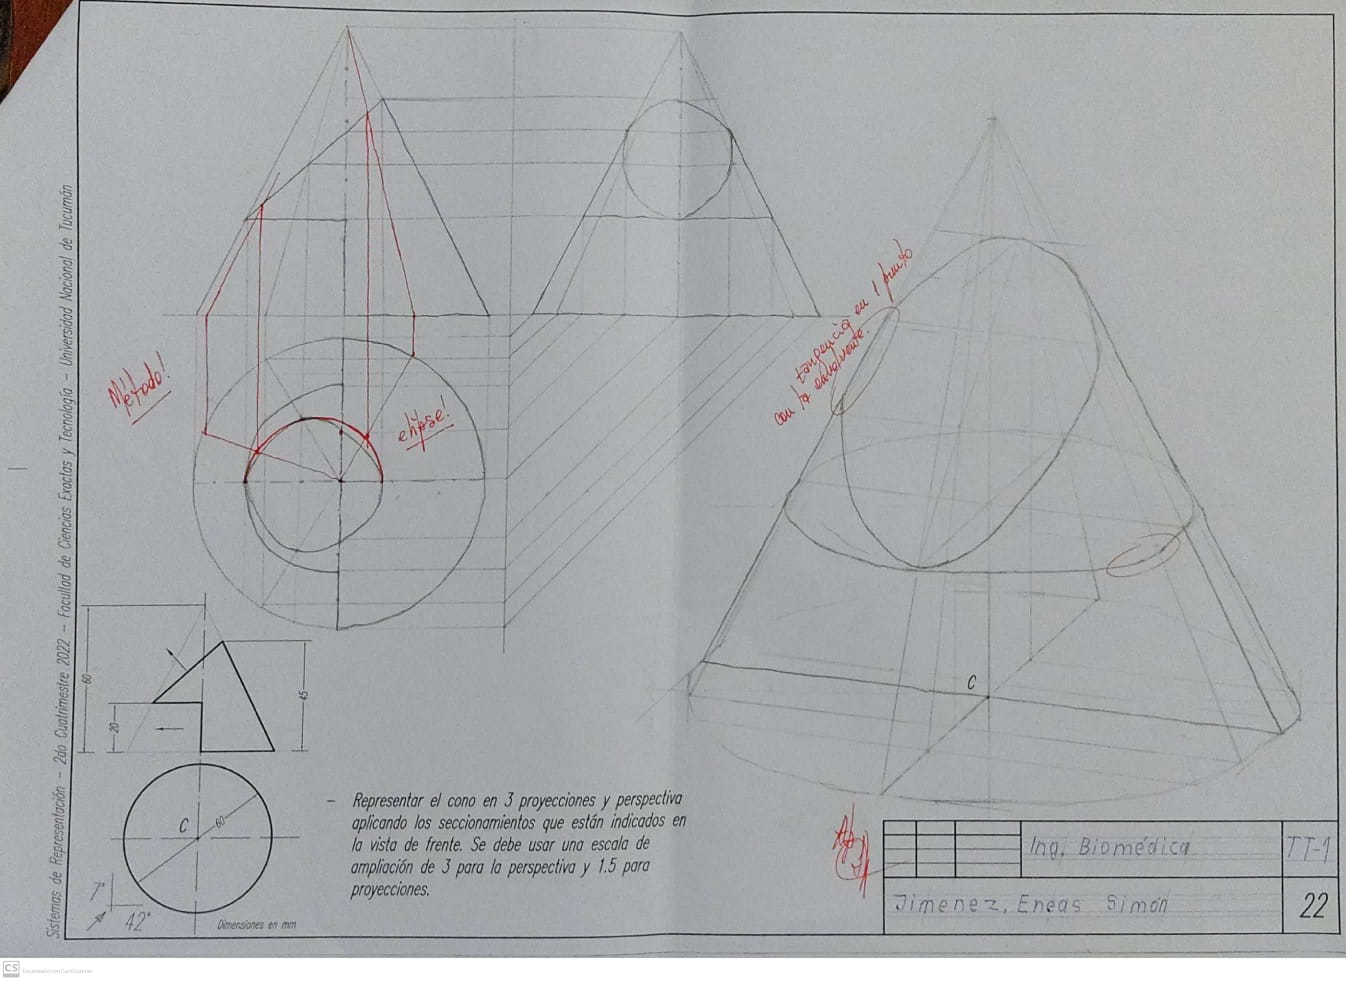 Sistemas de Representación - 2do Cuatrimestre 2022 - Facultad de Ciencias Exactas y Tecnología - Universidad Nacional de Tucumán
Método!
elipse!
tangencia en 1 punto
con la envolvente.
C
60
20
45
C
60
7°
42°
Dimensiones en mm
- Representar el cono en 3 proyecciones y perspectiva
aplicando los seccionamientos que están indicados en
la vista de frente. Se debe usar una escala de
ampliación de 3 para la perspectiva y 1.5 para
proyecciones.
Ing. Biomédica
TT-1
Jimenez, Eneas Simón
22
CS Escaneado con CamScanner